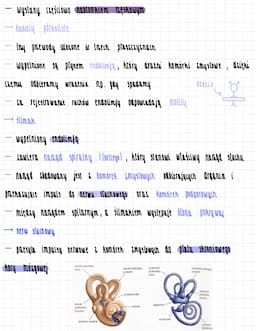 — wysłany częściowo nabłonkiem rzęskowym
→ kanały półkoliste
— trzy przewody ułożone w trzech płaszczyznach
— wypełnione są płynem endolimfą, który drażni komórki zmysłowe, dzięki
czemu odbieramy wrażenia np. gdy spadamy
— za rejestrowanie ruchów endolimfy odpowiadają
→ ślimak
— wypełniony endolimfą
— zawiera narząd spiralny (Cortiego), który stanowi właściwy narząd słuchu
— narząd zbudowany jest z komórek zmysłowych odbierających drgania i
przekazujące impuls do nerwu słuchowego oraz komórek podporowych
— między narządem spiralnym, a ślimakiem występuje błona pokrywa
→ nerw słuchowy
— przesyła impulsy nerwowe z komórek zmysłowych do płata skroniowego
kory mózgowej